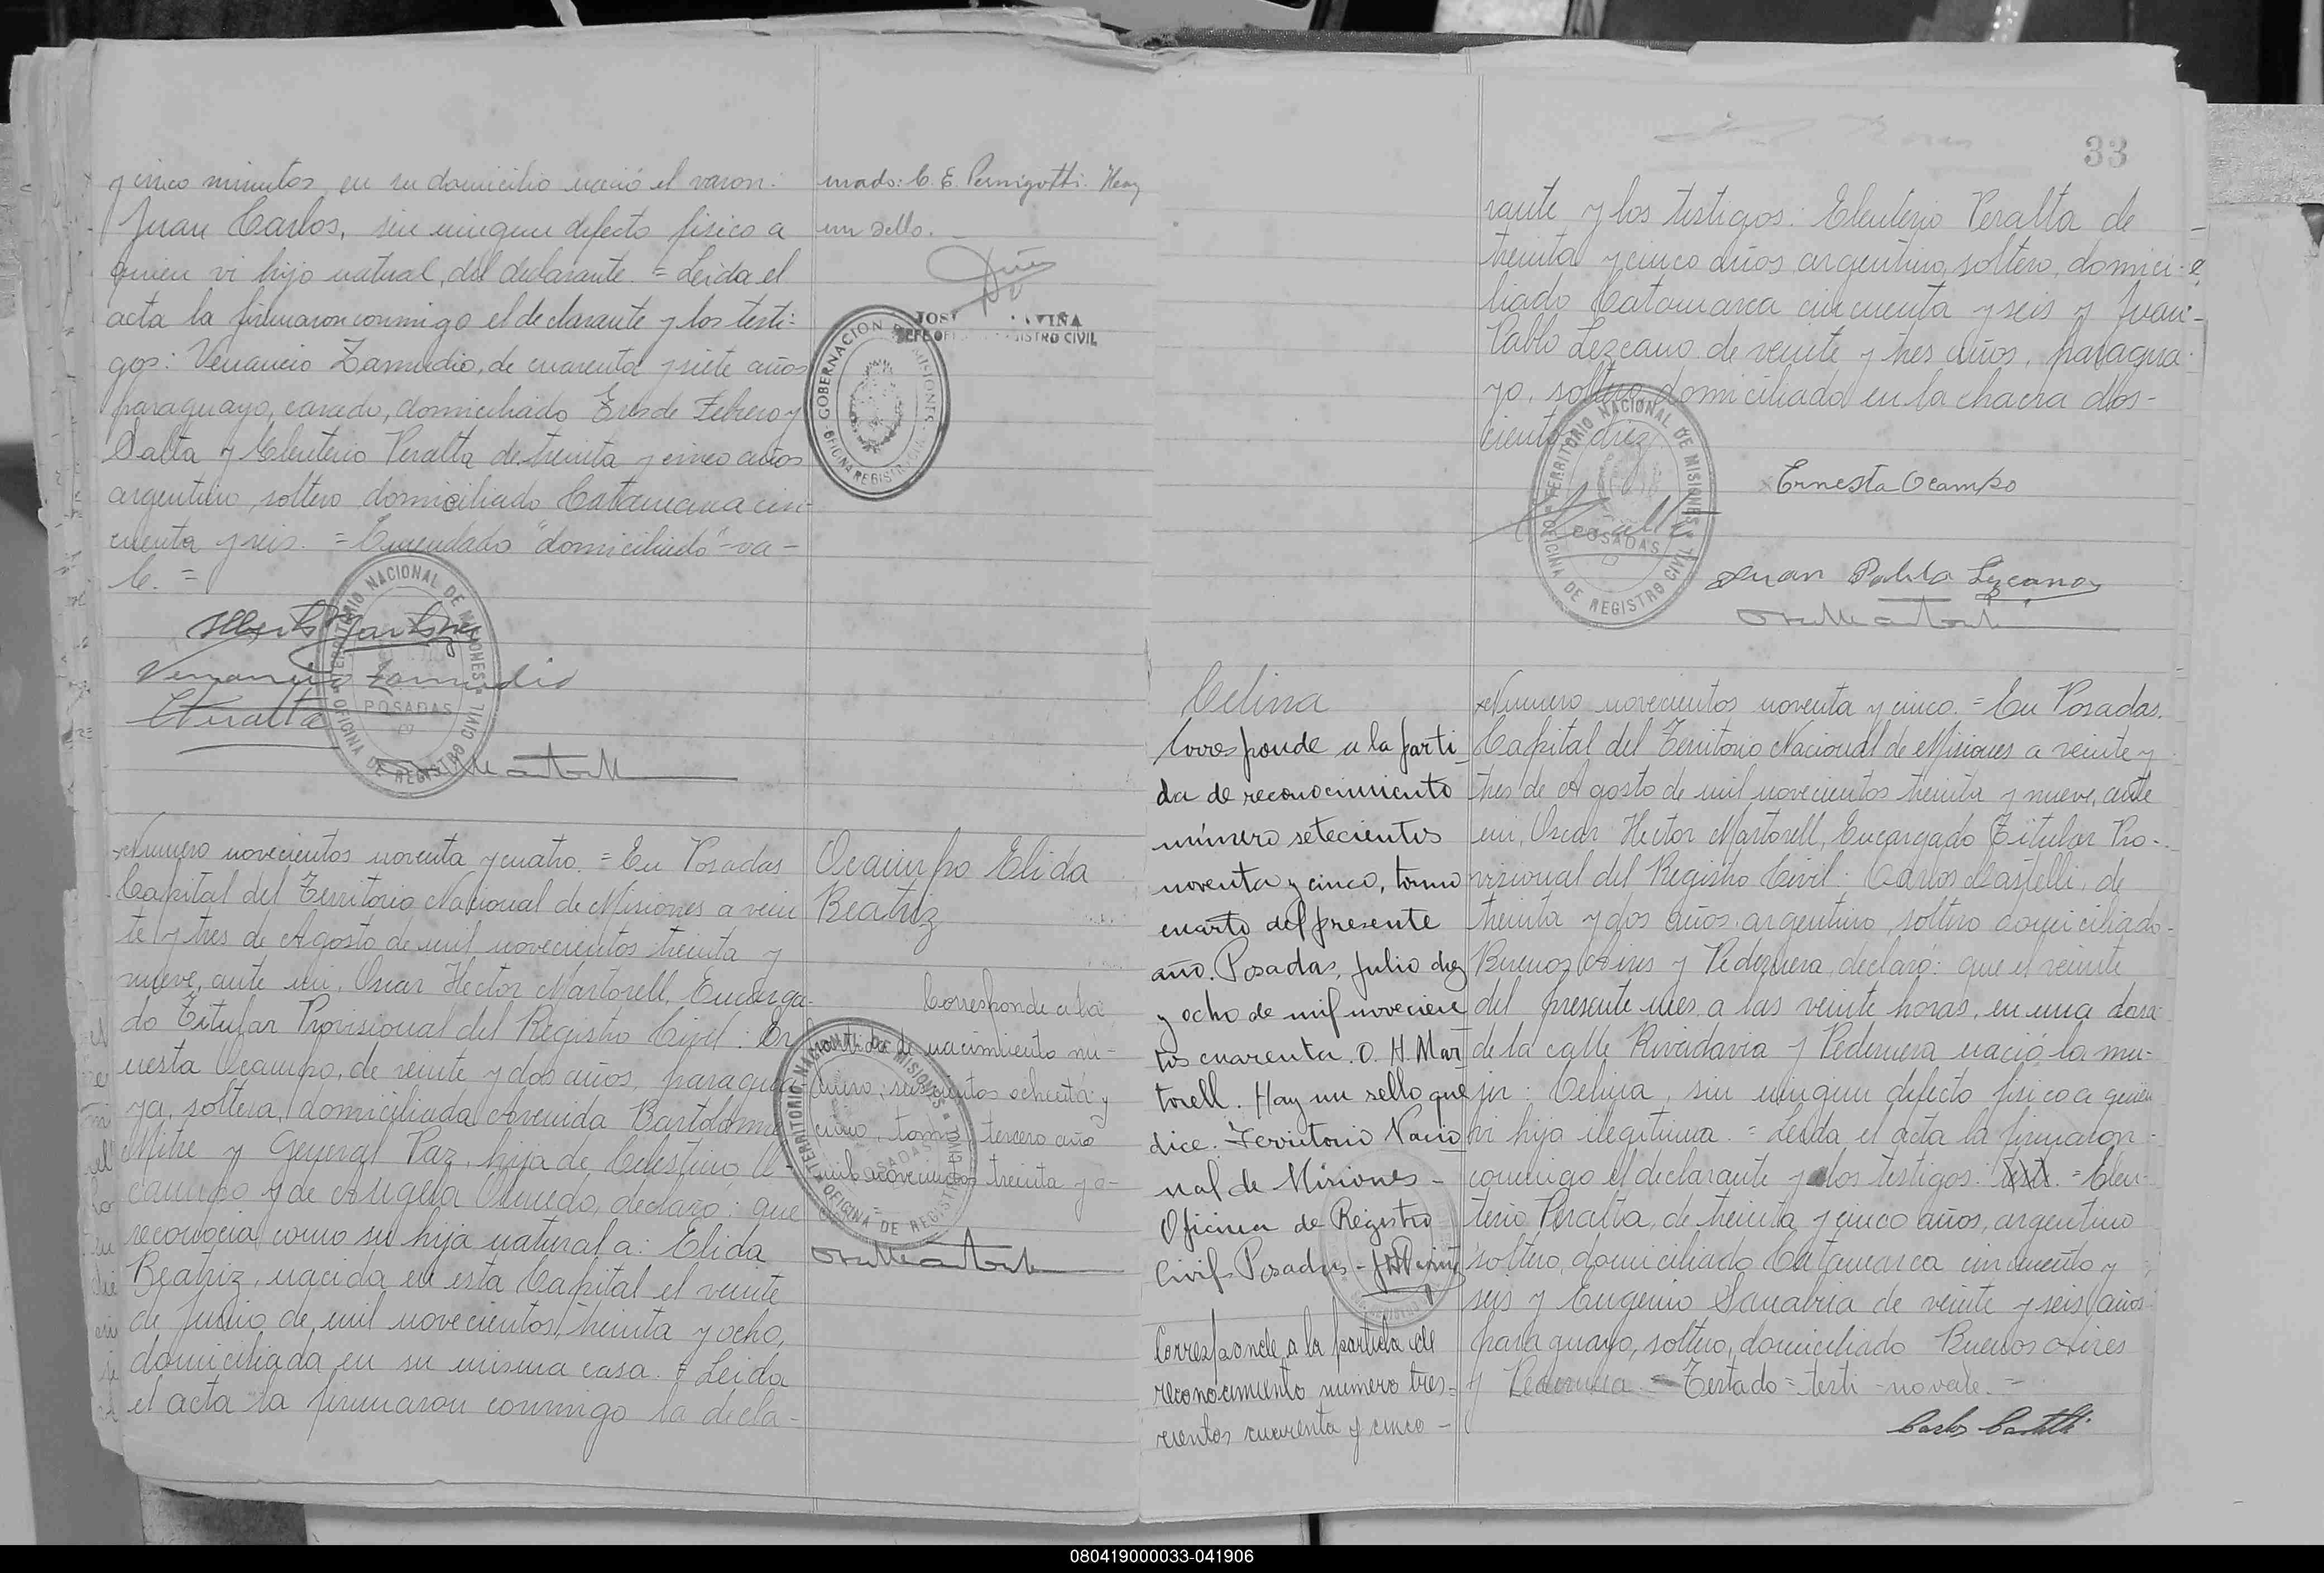 y cinco minutos, en su domicilio nació el varon:
Juan Carlos, sin ningun defecto fisico a
quien vi hijo natural, del declarante. = Leida el
acta la firmaron conmigo el declarante y los testi-
gos: Venancio Zamudio, de cuarenta y siete años
paraguayo, casado, domiciliado Tres de Febrero y
Salta y Eleuterio Peralta de treinta y cinco años
argentino, soltero domiciliado Catamarca cin-
cuenta y seis. = Enmendado "domiciliado" - va-
le. =
Venancio Zamudio
E Peralta
mado: C. E. Pernigotti. Hay
un sello. -
GOBERNACION DE MISIONES
OFICINA REGISTRO CIVIL
TERRITORIO NACIONAL DE MISIONES
OFICINA DE REGISTRO CIVIL
POSADAS
Numero novecientos noventa y cuatro. = En Posadas
Capital del Territorio Nacional de Misiones a vein
te y tres de Agosto de mil novecientos treinta y
nueve, ante mi, Oscar Hector Martorell, Encarga-
do Titular Provisional del Registro Civil: Er
nesta Ocampo, de veinte y dos años, paragua-
ya, soltera, domiciliada Avenida Bartolome
Mitre y General Paz, hija de Celestino O-
campo y de Angela Olmedo, declaró: que
reconocia como su hija natural a: Elida
Beatriz, nacida en esta Capital el veinte
de Junio de mil novecientos treinta y ocho,
domiciliada en su misma casa. = Leida
el acta la firmaron conmigo la decla-
Ocampo Elida
Beatriz
Corresponde a la
partida de nacimiento nu-
mero, seiscientos ochenta y
cinco, tomo tercero año
mil novecientos treinta y o-
TERRITORIO NACIONAL DE MISIONES
OFICINA DE REGISTRO CIVIL
POSADAS
33
rante y los testigos: Eleuterio Peralta de
treinta y cinco años, argentino, soltero, domici-
liado Catamarca cincuenta y seis y Juan
Pablo Lezcano de veinte y tres años, paragua-
yo, soltero, domiciliado en la chacra dos-
ciento diez
Ernesta Ocampo
Juan Pablo Lezcano
TERRITORIO NACIONAL DE MISIONES
OFICINA DE REGISTRO CIVIL
POSADAS
Celina
Corresponde a la parti
da de reconocimiento
número setecientos
noventa y cinco, tomo
cuarto del presente
año. Posadas, Julio diez
y ocho de mil novecien
tos cuarenta. O. H. Mar
torell. Hay un sello que
dice. Territorio Nacio
nal de Misiones -
Oficina de Registro
Civil - Posadas -
Corresponde a la partida de
reconocimiento numero tres-
cientos cuarenta y cinco -
Numero novecientos noventa y cinco. = En Posadas.
Capital del Territorio Nacional de Misiones a veinte y
tres de Agosto de mil novecientos treinta y nueve, ante
mi, Oscar Hector Martorell, Encargado Titular Pro-
visional del Registro Civil: Carlos Castelli, de
treinta y dos años, argentino, soltero domiciliado
Buenos Aires y Pedernera, declaró: que el veinte
del presente mes a las veinte horas, en una casa
de la calle Rivadavia y Pedernera nació la mu-
jer: Celina, sin ningun defecto fisico a quien
vi hija ilegitima. = Leida el acta la firmaron
conmigo el declarante y los testigos: = Eleu-
terio Peralta, de treinta y cinco años, argentino
soltero, domiciliado Catamarca cincuenta y
seis y Eugenio Sanabria de veinte y seis años
paraguayo, soltero, domiciliado Buenos Aires
y Pedernera = Testado = testi - no vale. =
Carlos Castelli
080419000033-041906